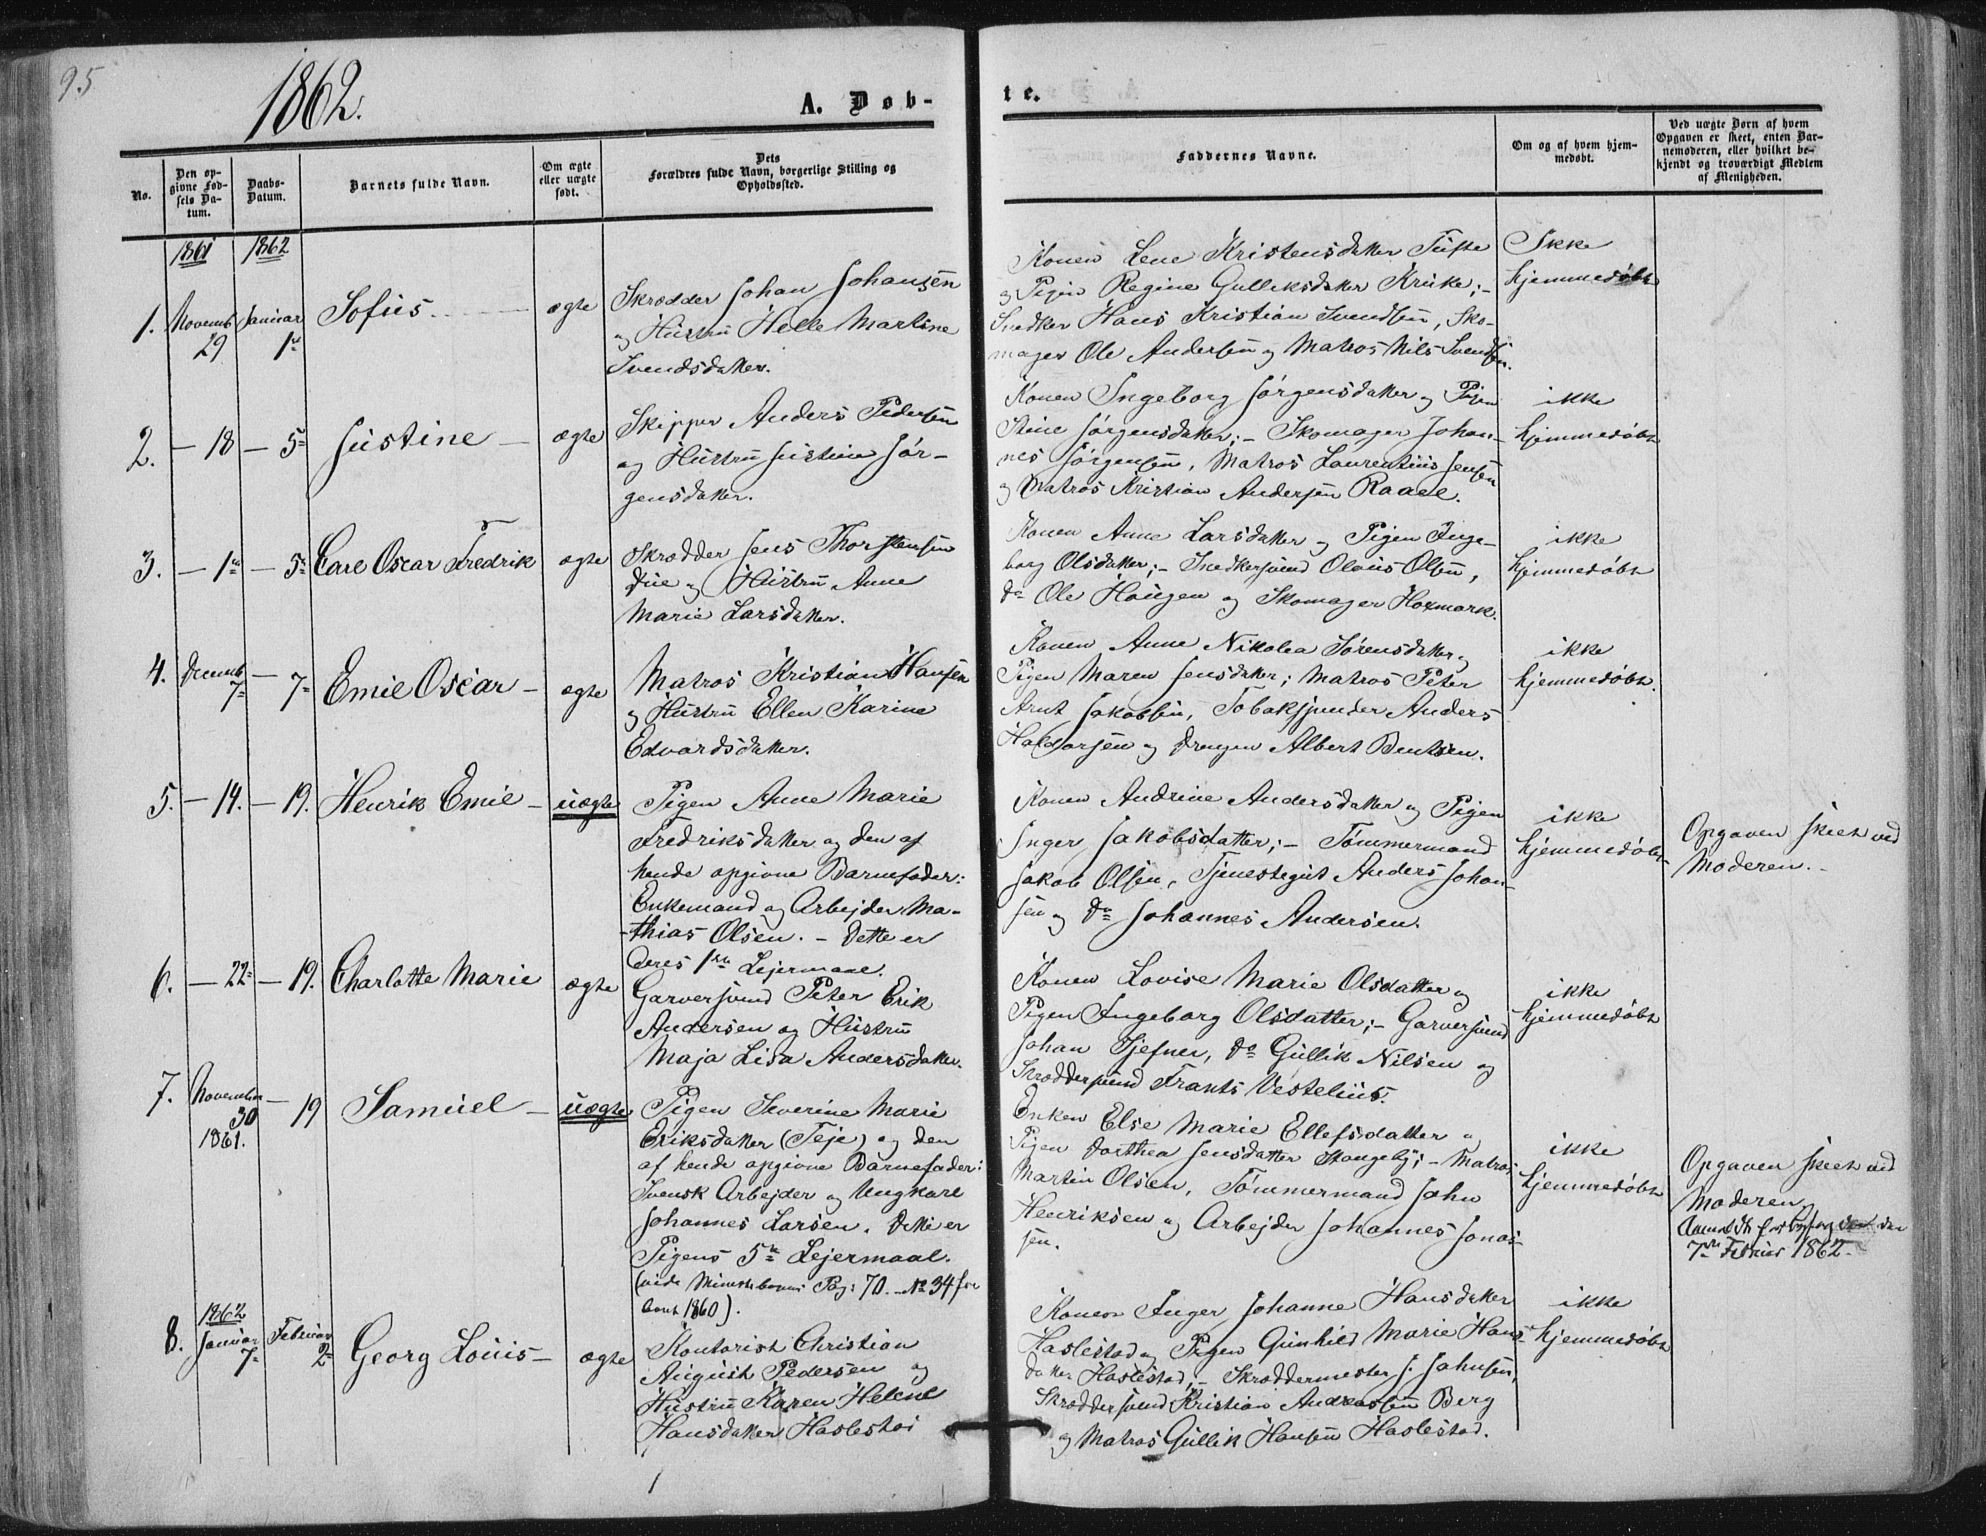 95
1862.
A. Døb-
te.
No.
Den op-
givne Fød-
sels Da-
tum.
Daabs-
Datum.
Barnets fulde Navn.
Om ægte
eller uægte
født.
Dets
Forældres fulde Navn, borgerlige Stilling og
Opholdssted.
Faddernes Navne.
Om og af hvem hjem-
medøbt.
Ved uægte Børn af hvem
Opgaven er skeet, enten Bar-
nemoderen, eller hvilket be-
kjendt og troværdigt Medlem
af Menigheden.
1861 1862
1. Novemb 29 Januar 1ste
Sofus
ægte
Skrædder Johan Johansen
og Hustru Helle Martine
Svendsdatter.
Konen Lene Kristensdatter Tufte
og Pigen Regine Gulliksdatter Kruke;-
Snedker Hans Kristian Svendsen, Sko-
mager Ole Andersen og Matros Nils Svendsen.
Ikke
hjemmedøbt
2. - 18 - 5=
Justine -
ægte
Skipper Anders Pedersen
og Hustru Justine Jør-
gensdatter.
Konen Ingeborg Jørgensdatter og Pigen
Stine Jørgensdatter; - Skomager Johan-
nes Jørgensen, Matros Laurentius Jensen
og Matros Kristian Andersen Raael.
ikke
hjemmedøbt
3. - 1ste - 5te
Carl Oscar Fredrik
ægte
Skrædder Jens Thorstensen
Due og Hustru Anne
Marie Larsdatter.
Konen Anne Larsdatter og Pigen Inge-
borg Olsdatter; - Snedkersvend Olaus Olsen,
do Ole Haugen og Skomager Hoxmark.
ikke
hjemmedøbt
4. Decemb 7= - 7=
Emil Oscar -
ægte
Matros Kristian Hansen
og Hustru Ellen Karine
Edvardsdatter.
Konen Anne Nikolea Sørensdatter og
Pigen Maren Jensdatter; Matros Peter
Arnt Jakobsen, Tobakspinder Anders
Haldorsen og Drengen Albert Bentsen.
ikke
hjemmedøbt.
5. - 14. - 19.
Henrik Emil -
uægte
Pigen Anne Marie
Fredriksdatter og den af
hende opgivne Barnefader:
Enkemand og Arbejder Ma-
thias Olsen. - Dette er
deres 1ste Lejermaal.
Konen Andrine Andersdatter og Pigen
Inger Jakobsdatter; - Tømmermand
Jakob Olsen, Tjenestegut Anders Johan-
sen og do Johannes Andersen.
ikke
hjemmedøbt
Opgaven skeet ved
Moderen. -
6. - 22= - 19.
Charlotte Marie
ægte
Garversvend Peter Erik
Andersen og Hustru
Maja Lisa Andersdatter.
Konen Lovise Marie Olsdatter og
Pigen Ingeborg Olsdatter; - Garversvend
Johan Tjefner, do Gullik Nilsen og
Skræddersvend Frants Vestelius.
ikke
hjemmedøbt
7. November 30 1861. - 19
Samuel -
uægte
Pigen Severine Marie
Eriksdatter (Teje) og den
af hende opgivne Barnefader:
Svensk Arbejder og Ungkarl
Johannes Larsen. Dette er
Pigens 5te Lejermaal.
(vide Ministerialbogens Pag: 70. No 34 for
Aaret 1860).
Enken Else Marie Ellefsdatter og
Pigen Dorthea Jensdatter Stangeby; - Matros
Martin Olsen, Tømmermand John
Henriksen og Arbejder Johannes Jonas-
sen.
ikke
hjemmedøbt
Opgaven skeet ved
Moderen
Anmeldt for Byfogden den
7de Februar 1862.
8. 1862 Januar 7= Februar 2=
Georg Louis -
ægte
Kontorist Christian
August Pedersen og
Hustru Karen Helene
Hansdatter Haslestad
Konen Inger Johanne Hansdatter
Haslestad og Pigen Gunhild Marie Hans-
datter Haslestad, - Skræddermester J. Johnsen,
Skræddersvend Kristian Andreassen Berg
og Matros Gullik Hansen Haslestad.
ikke
hjemmedøbt
1